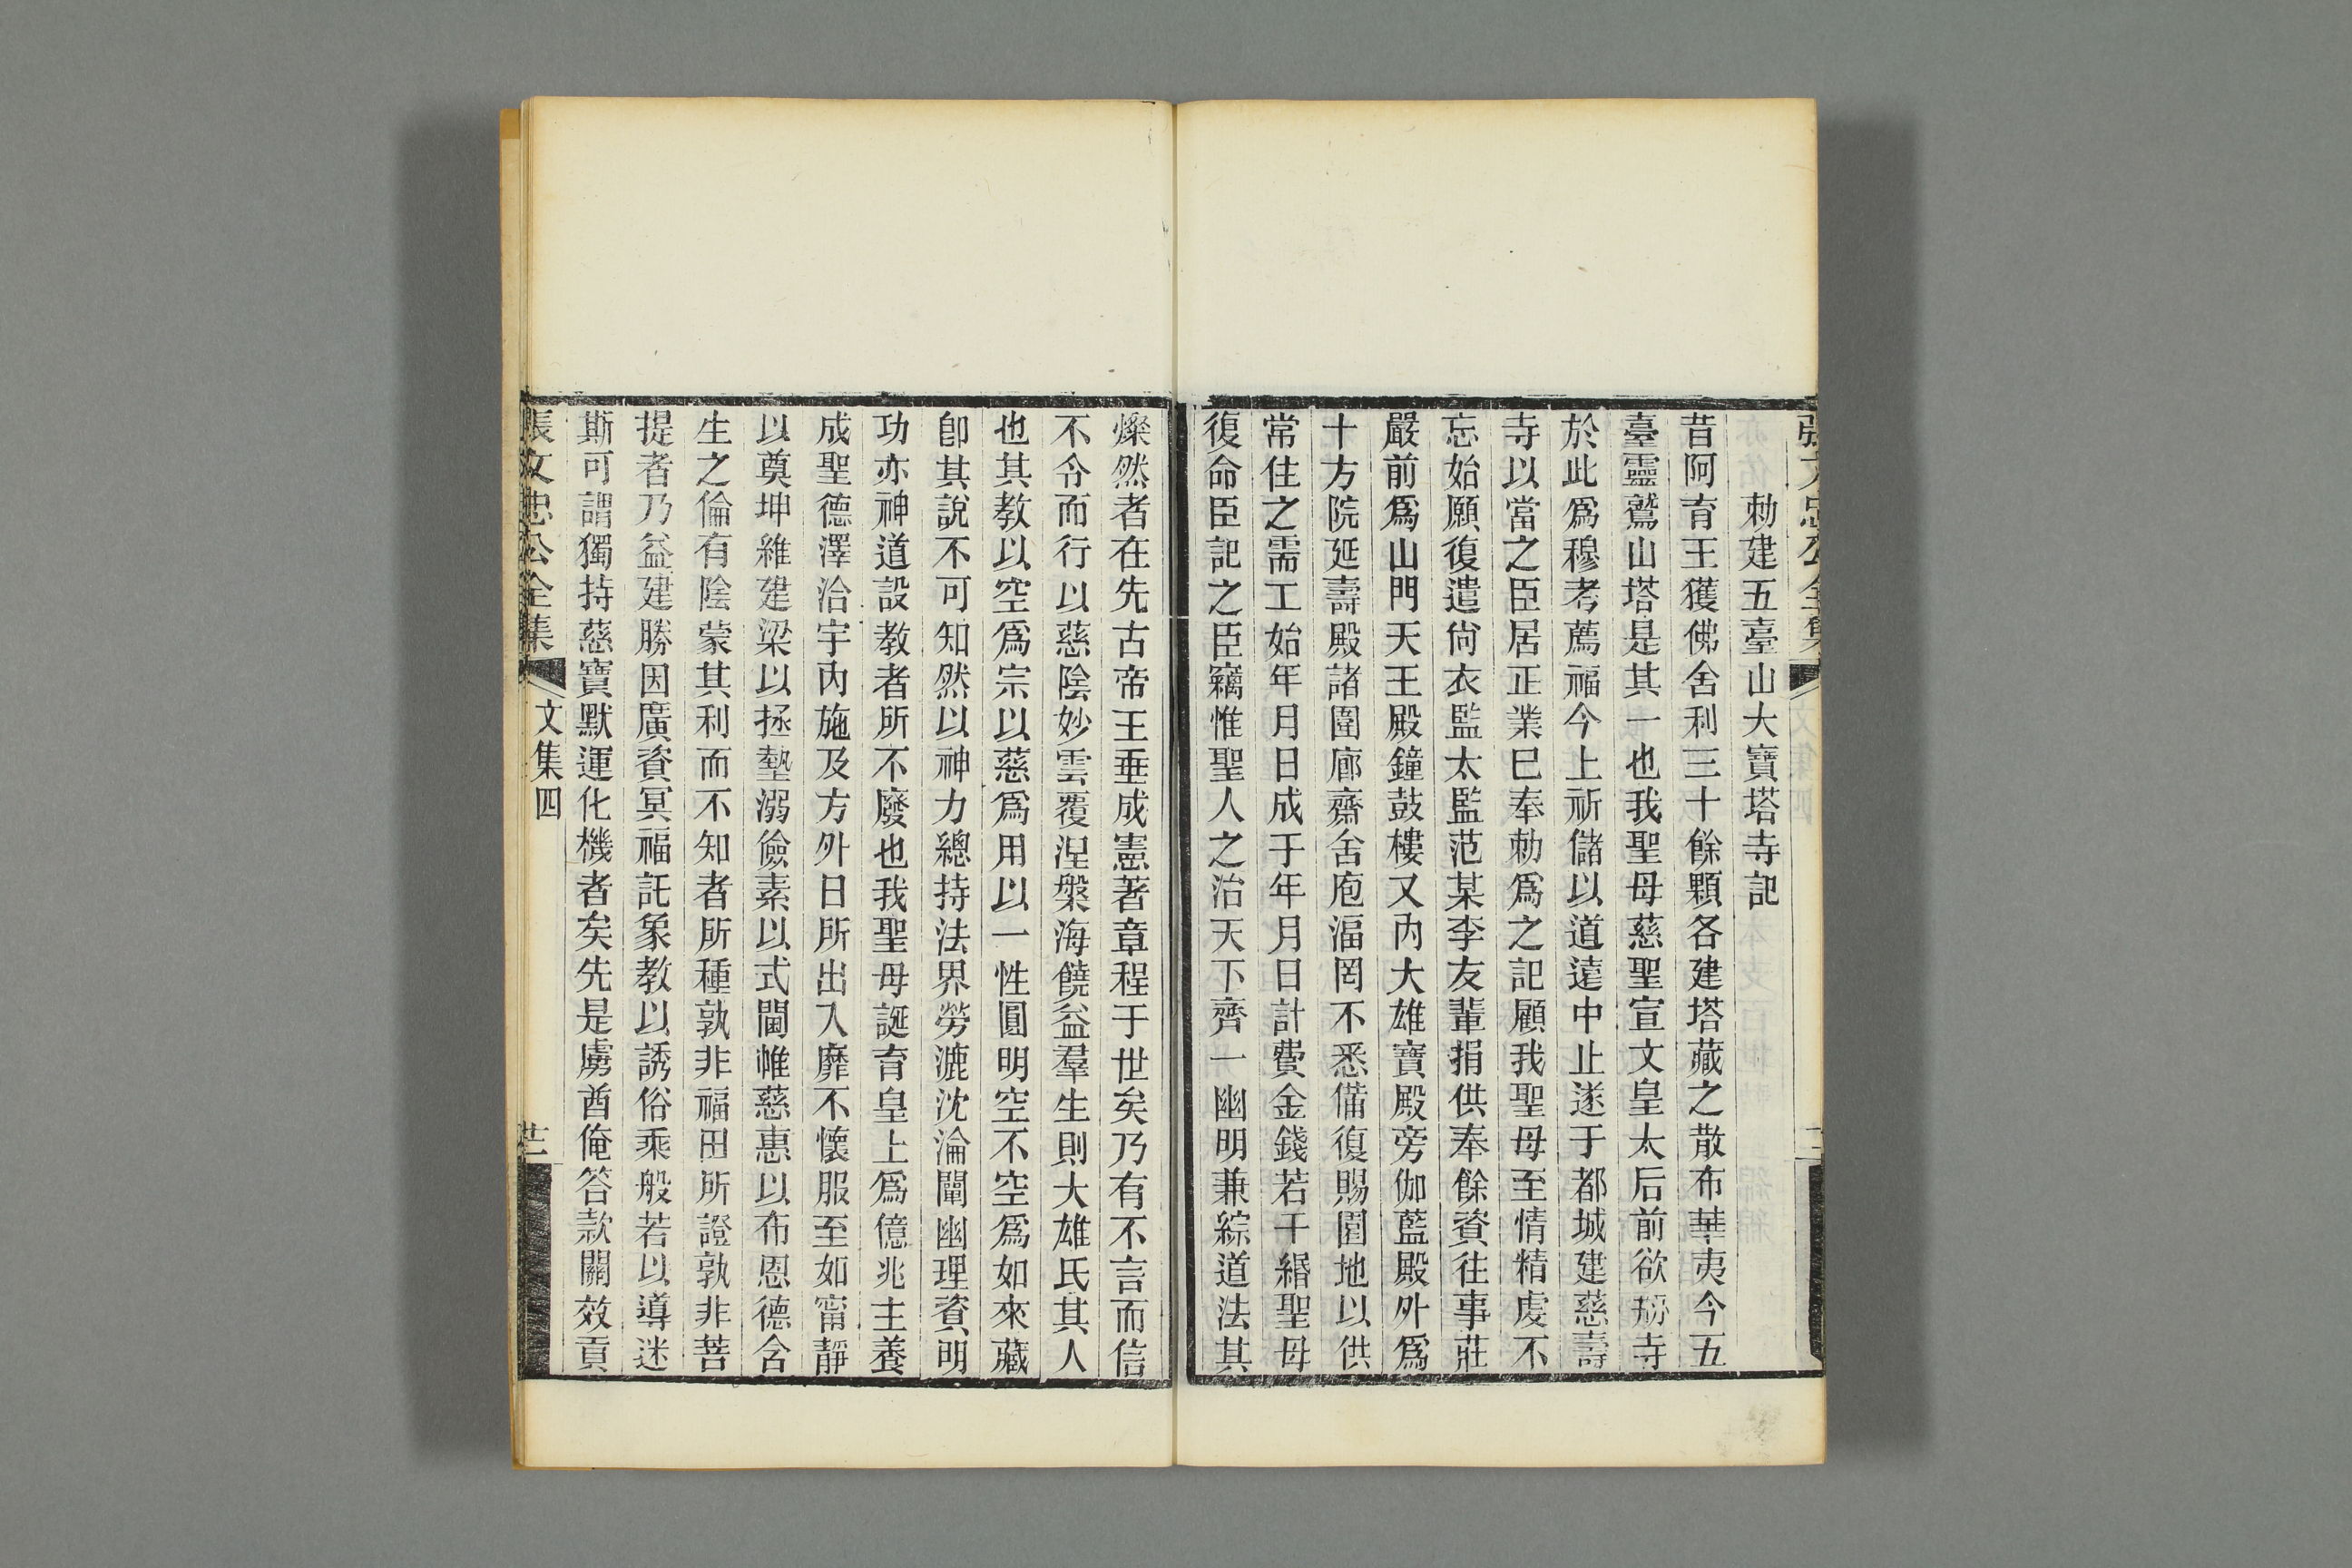 勅建五臺山大寶塔寺記
昔阿育王獲佛舍利三十餘顆各建塔藏之散布華夷今五
臺靈鷲山塔是其一也我聖母慈聖宣文皇太后前欲刱寺
於此爲穆考薦福今上祈儲以道遠中止遂于都城建慈壽
寺以當之臣居正業巳奉勅爲之記顧我聖母至情精虔不
忘始願復遣尙衣監太監范某李友輩捐供奉餘資往事莊
嚴前爲山門天王殿鐘鼓樓又內大雄寶殿旁伽藍殿外爲
十方院延壽殿諸圍廊齋舍庖湢罔不悉備復賜園地以供
常住之需工始年月日成于年月日計費金錢若干緡聖母
復命臣記之臣竊惟聖人之治天下齊一幽明兼綜道法其
燦然者在先古帝王垂成憲著章程于世矣乃有不言而信
不令而行以慈陰妙雲覆涅槃海饒益羣生則大雄氏其人
也其教以空爲宗以慈爲用以一性圓明空不空爲如來藏
卽其說不可知然以神力總持法界勞漉沈淪闡幽理資明
功亦神道設教者所不廢也我聖母誕育皇上爲億兆主養
成聖德澤洽宇內施及方外日所出入靡不懷服至如甯靜
以奠坤維建梁以拯墊溺儉素以式閫帷慈惠以布恩德含
生之倫有陰蒙其利而不知者所種孰非福田所證孰非菩
提者乃益建勝因廣資冥福託象教以誘俗乘般若以導迷
斯可謂獨持慈寶默運化機者矣先是虜酋俺答款關效貢
張文忠公全集
文集四